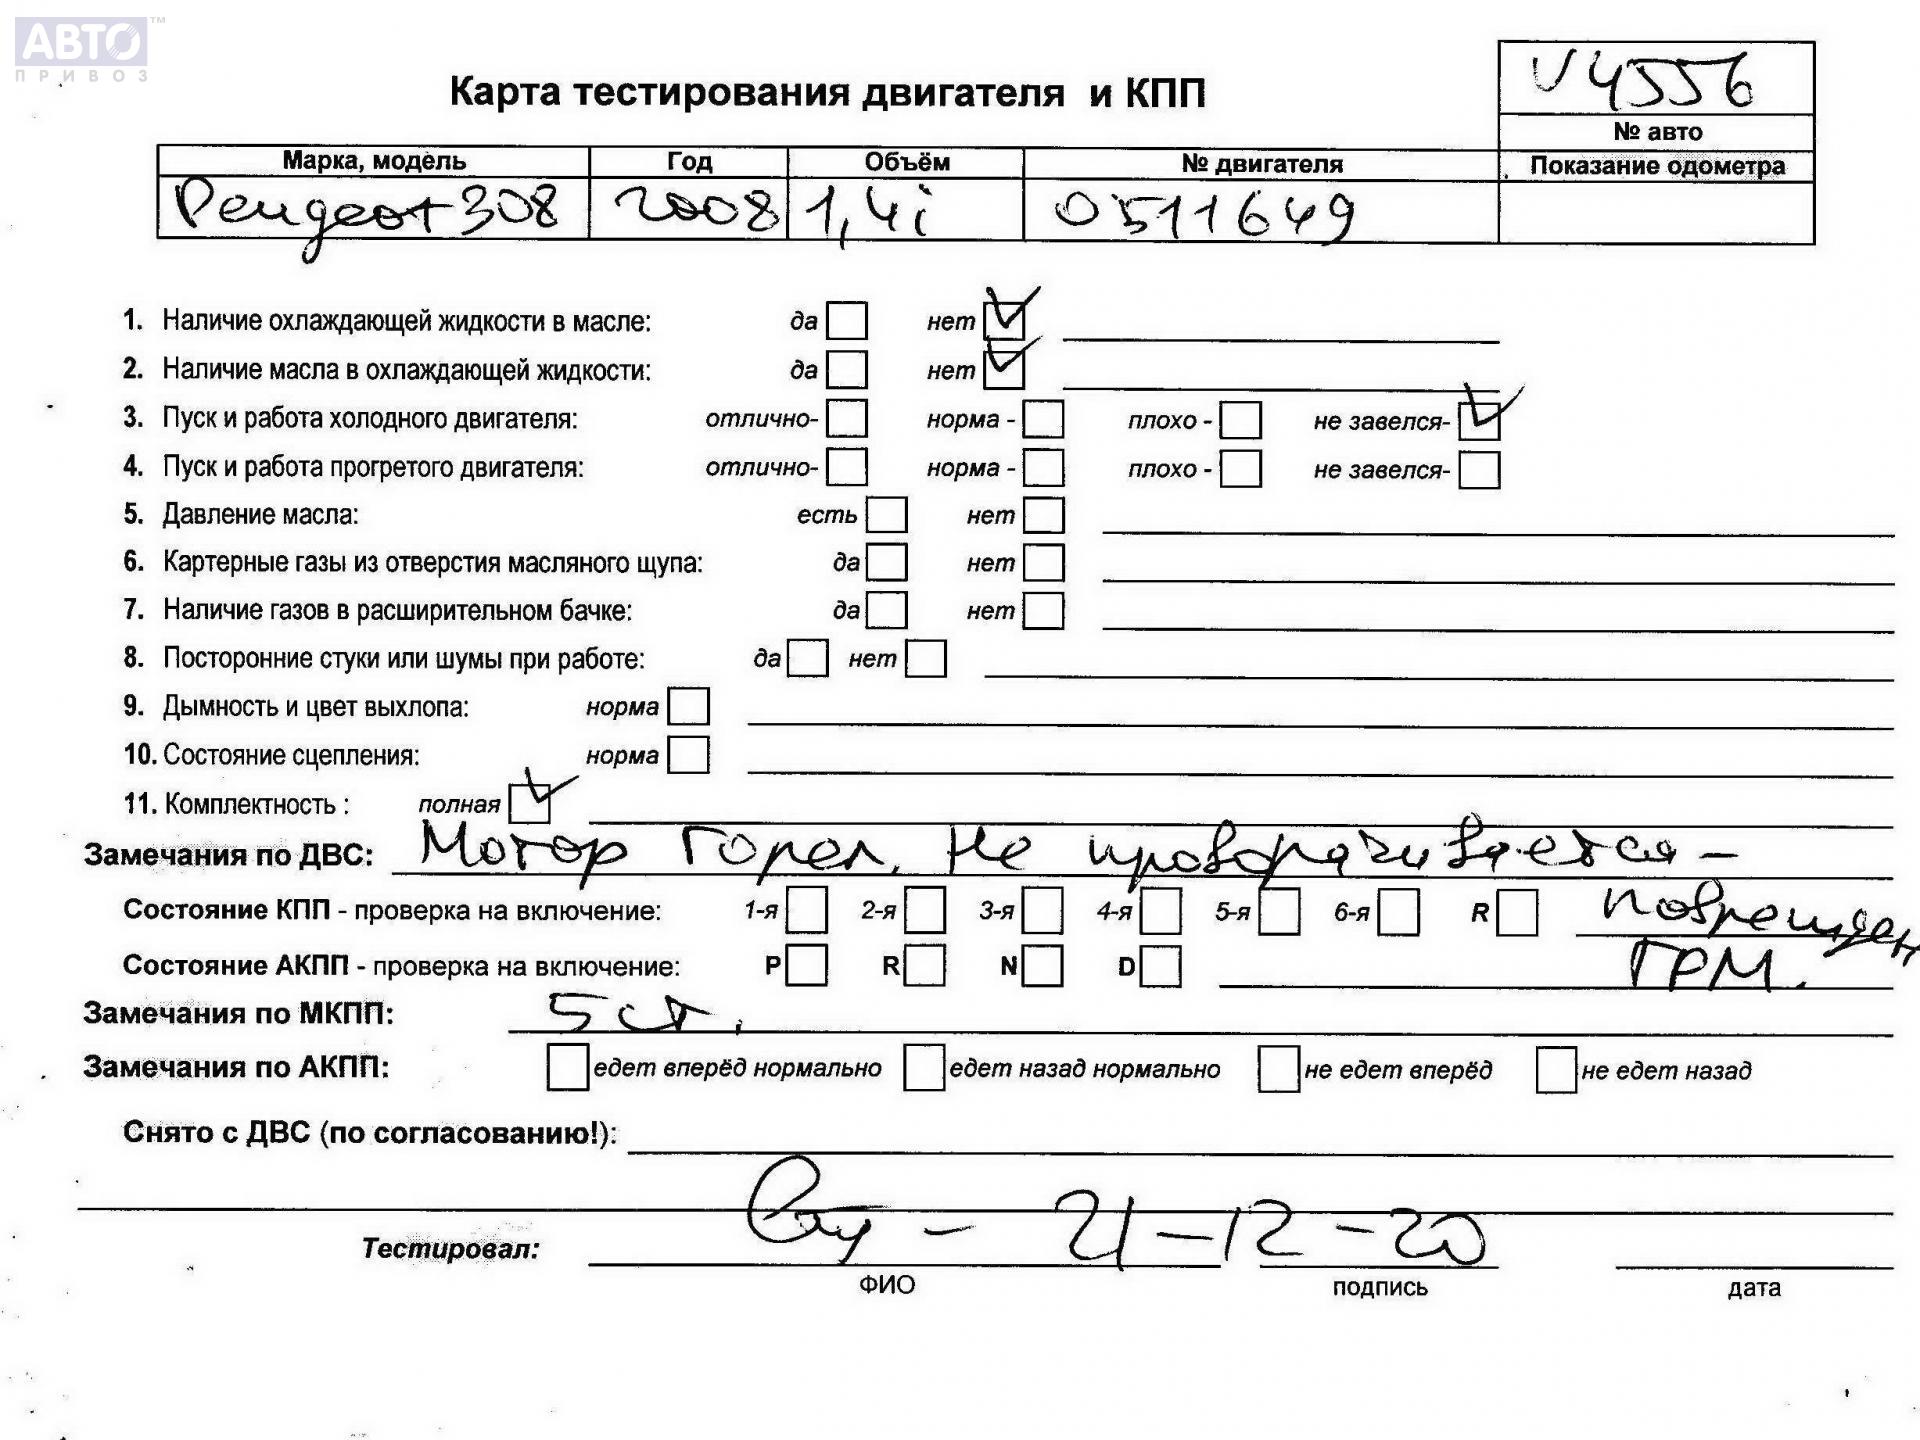 АВТО™
ПРИВОЗ
Карта тестирования двигателя и КПП
V4556
№ авто
Марка, модель Год Объём № двигателя Показание одометра
Peugeot 308 2008 1,4i 0511649
1. Наличие охлаждающей жидкости в масле: да нет
2. Наличие масла в охлаждающей жидкости: да нет
3. Пуск и работа холодного двигателя: отлично- норма - плохо - не завелся-
4. Пуск и работа прогретого двигателя: отлично- норма - плохо - не завелся-
5. Давление масла: есть нет
6. Картерные газы из отверстия масляного щупа: да нет
7. Наличие газов в расширительном бачке: да нет
8. Посторонние стуки или шумы при работе: да нет
9. Дымность и цвет выхлопа: норма
10. Состояние сцепления: норма
11. Комплектность : полная
Замечания по ДВС: Мотор горел. Не проворачивается –
Состояние КПП - проверка на включение: 1-я 2-я 3-я 4-я 5-я 6-я R поврежден
Состояние АКПП - проверка на включение: P R N D ГРМ.
Замечания по МКПП: 5 ст.
Замечания по АКПП: едет вперёд нормально едет назад нормально не едет вперёд не едет назад
Снято с ДВС (по согласованию!):
Тестировал: – 21-12-20
ФИО подпись дата